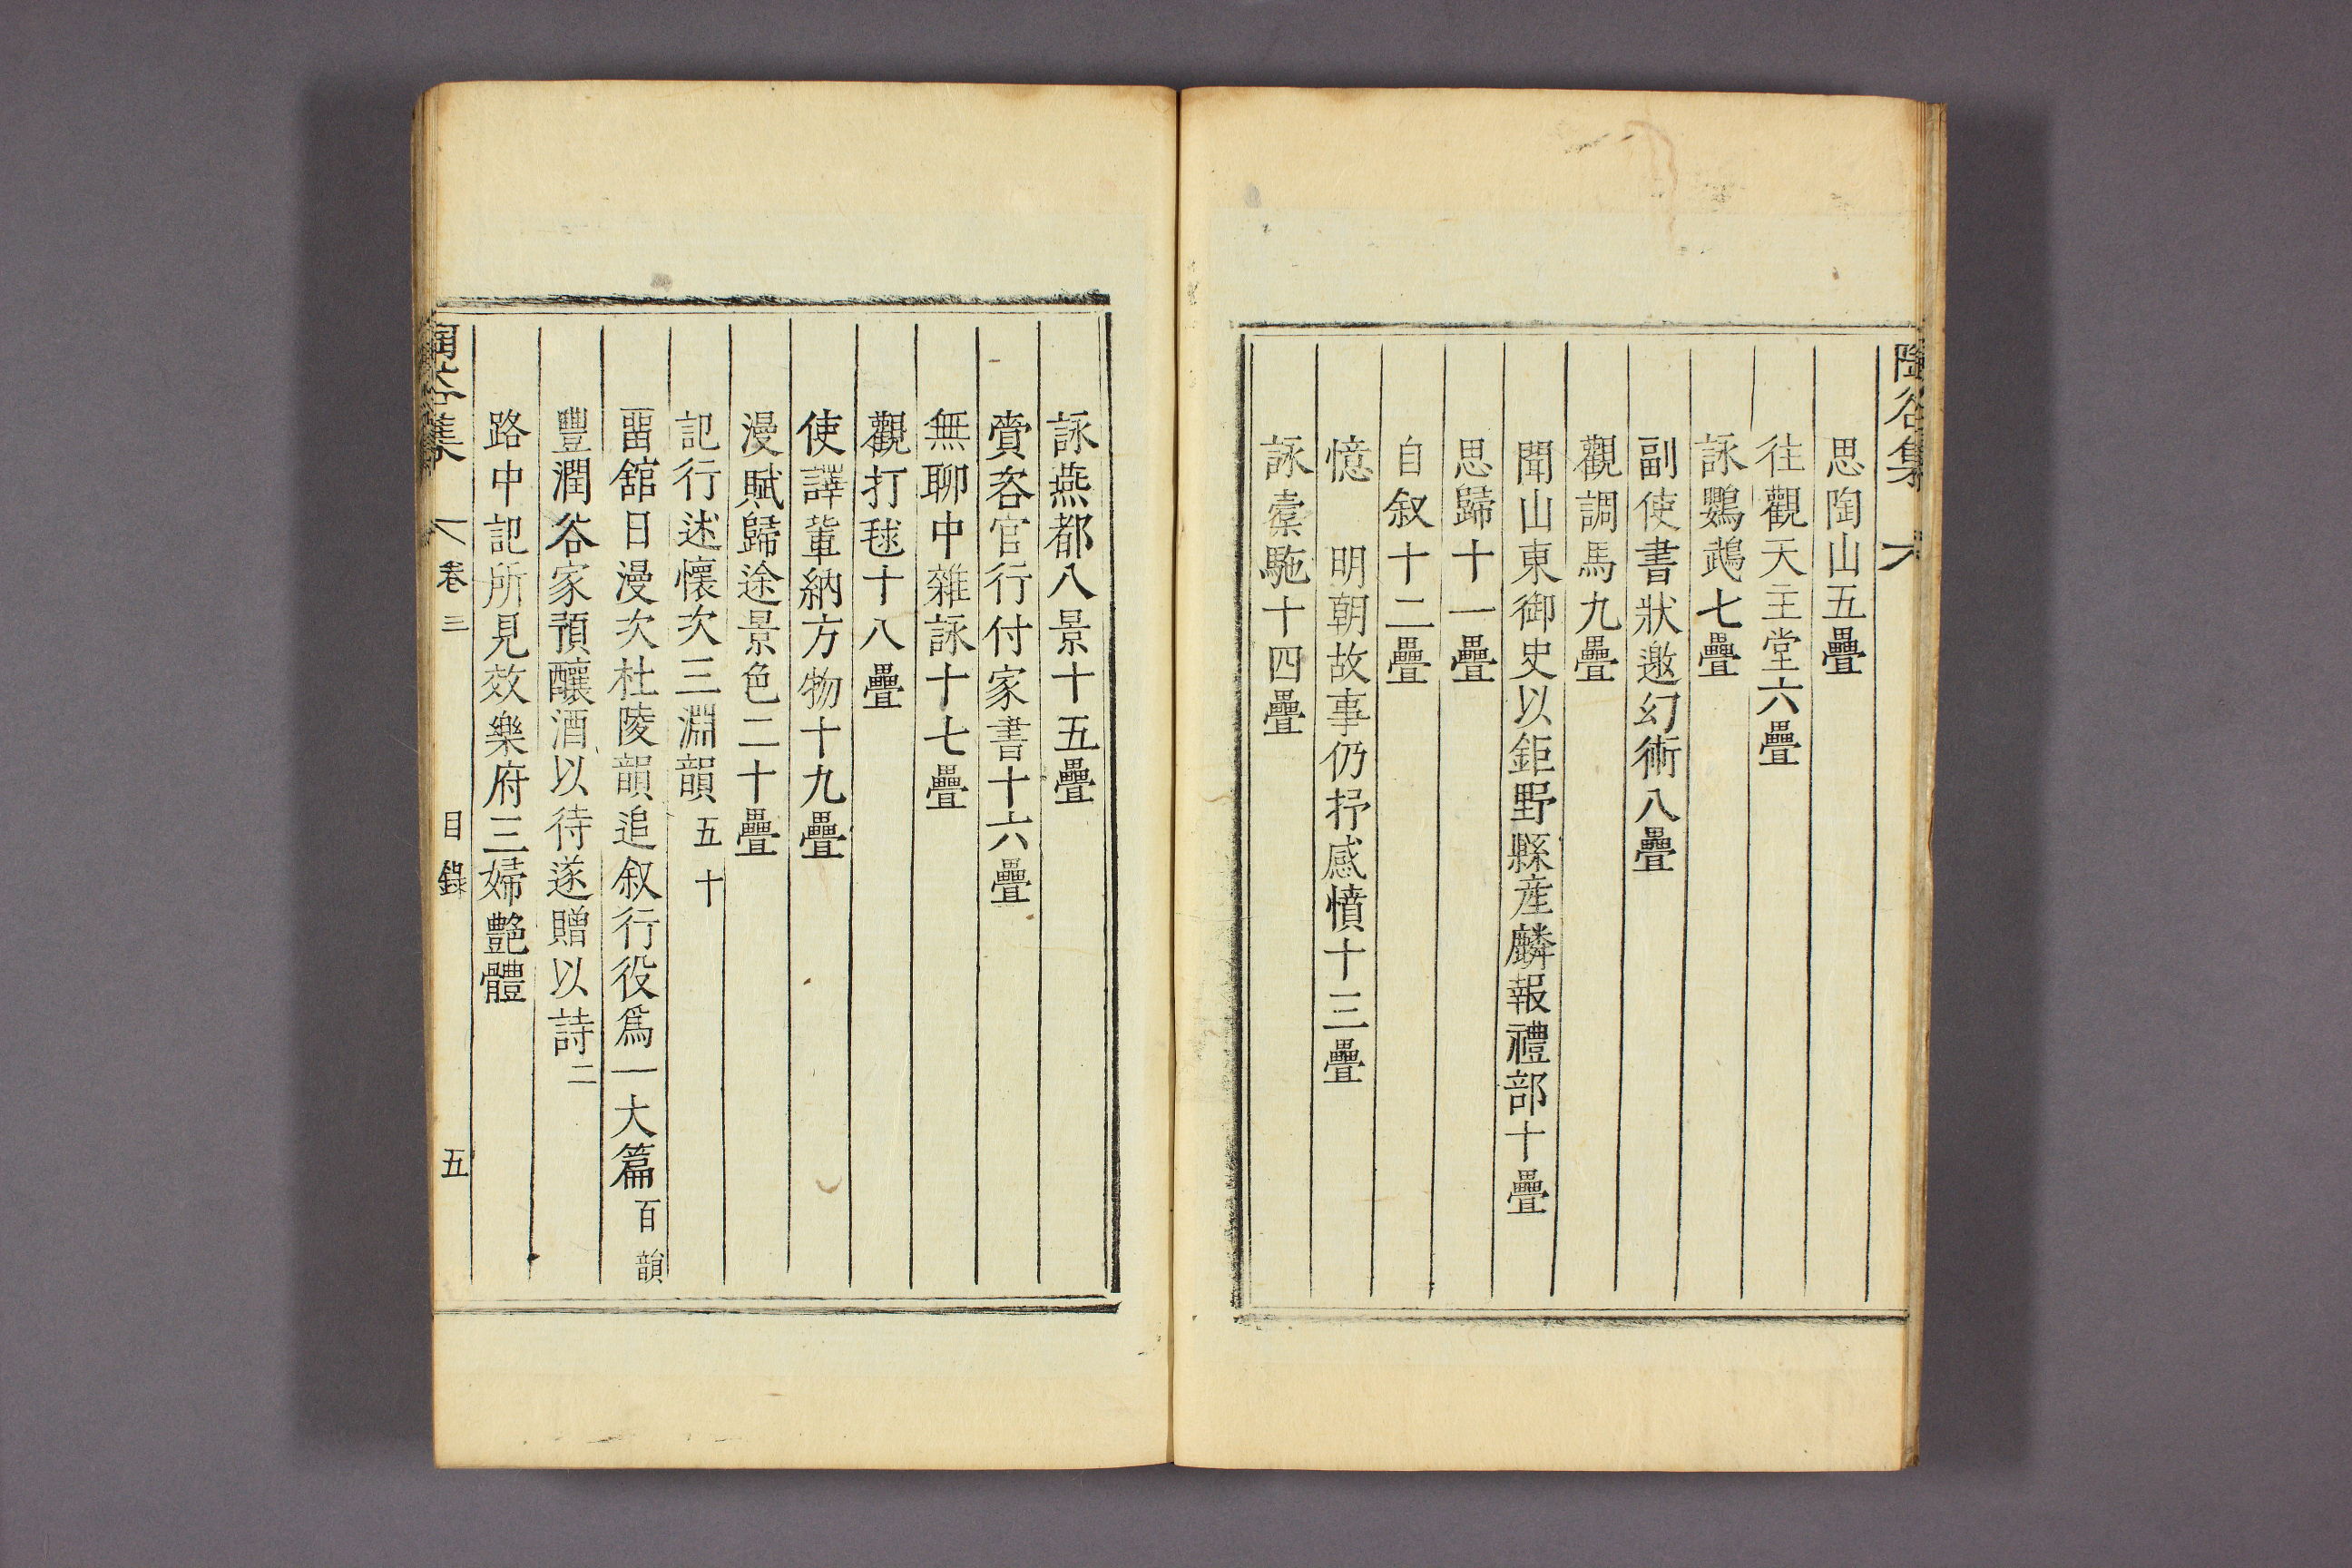 陶谷集
思陶山五疊
往觀天主堂六疊
詠鸚鵡七疊
副使書狀邀幻術八疊
觀調馬九疊
聞山東御史以鉅野縣産麟報禮部十疊
思歸十一疊
自叙十二疊
憶　明朝故事仍抒感憤十三疊
詠槖駞十四疊
詠燕都八景十五疊
賷咨官行付家書十六疊
無聊中雜詠十七疊
觀打毬十八疊
使譯輩納方物十九疊
漫賦歸途景色二十疊
記行述懷次三淵韻五十
畱舘日漫次杜陵韻追叙行役爲一大篇百韻
豐潤谷家預釀酒以待遂贈以詩二
路中記所見效樂府三婦艶體
陶谷集 卷三 目錄 五